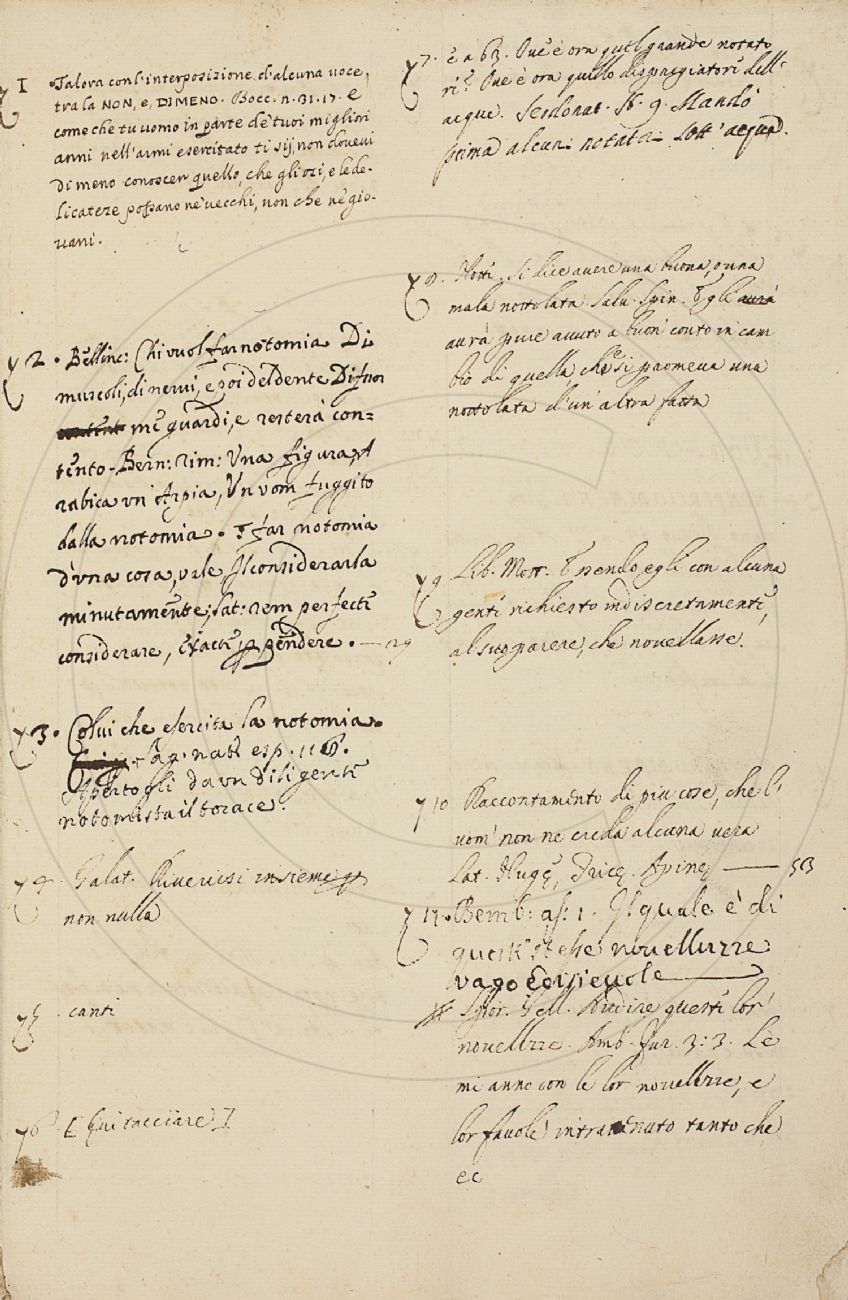 1 Talora con l'interposizione d'alcuna voce,
tra la NON, e, DI MENO. Bocc. n. 31. 17. E
come che tu uomo in parte de' tuoi migliori
anni nell'armi esercitato ti sij, non dovevi
di meno conoscer quello, che gli ozi, e le de-
licateze possano ne' vecchi, non che ne' gio-
vani.
2. Bellinc: Chi vuol far notomia Di
muscoli, di nervi, e poi del dente Di fuor
me guardi, e resterà con=
tento. Bern: rim: Una figura A
rabica un' Arpia, Un uom fuggito
dalla notomia. far notomia
d'una cosa, vale Il considerarla
minutamente; Lat: rem perfectè
considerare, exactè ppendere. — 29
3. Colui che esercita la notomia.
Sag. nat. esp. 116.
Apertogli da un diligente
notomista il torace.
4. Galat. Riverirsi insieme p
non nulla
5. canti
6. [ Qui tacciare ]
7. e a 63. Ove è ora quel grande notato
ri? Ove è ora quello dispregiatore dell'
acque. Serdonat. St. 9. Mandò
prima alcuni notatori sott' acqua.
8. Nott. Si dice avere una buona, o una
mala nottolata. Salv. Spin. Egli avrà
avrà pure avuto a buon conto in cam
bio di quella, che si prometteva una
nottolata d'un' altra fatta
9 Lib. Mott. Essendo egli con alcuna
gente richiesto indiscretamente,
al suo parere, che novellasse.
10 Raccontamento di più cose, che l'
uom' non ne creda alcuna vera
Lat. Nugę, Tricę. Apinę — 53
11. Bemb: as: 1. Il quale è di
queste stesse novelluzze
vago
Fior. Bell. Audire queste lor'
novelluzze. Amb. Fur. 3: 3. Le
mi anno con le lor novelluzze, e
lor favole intrattenuto tanto che
ec